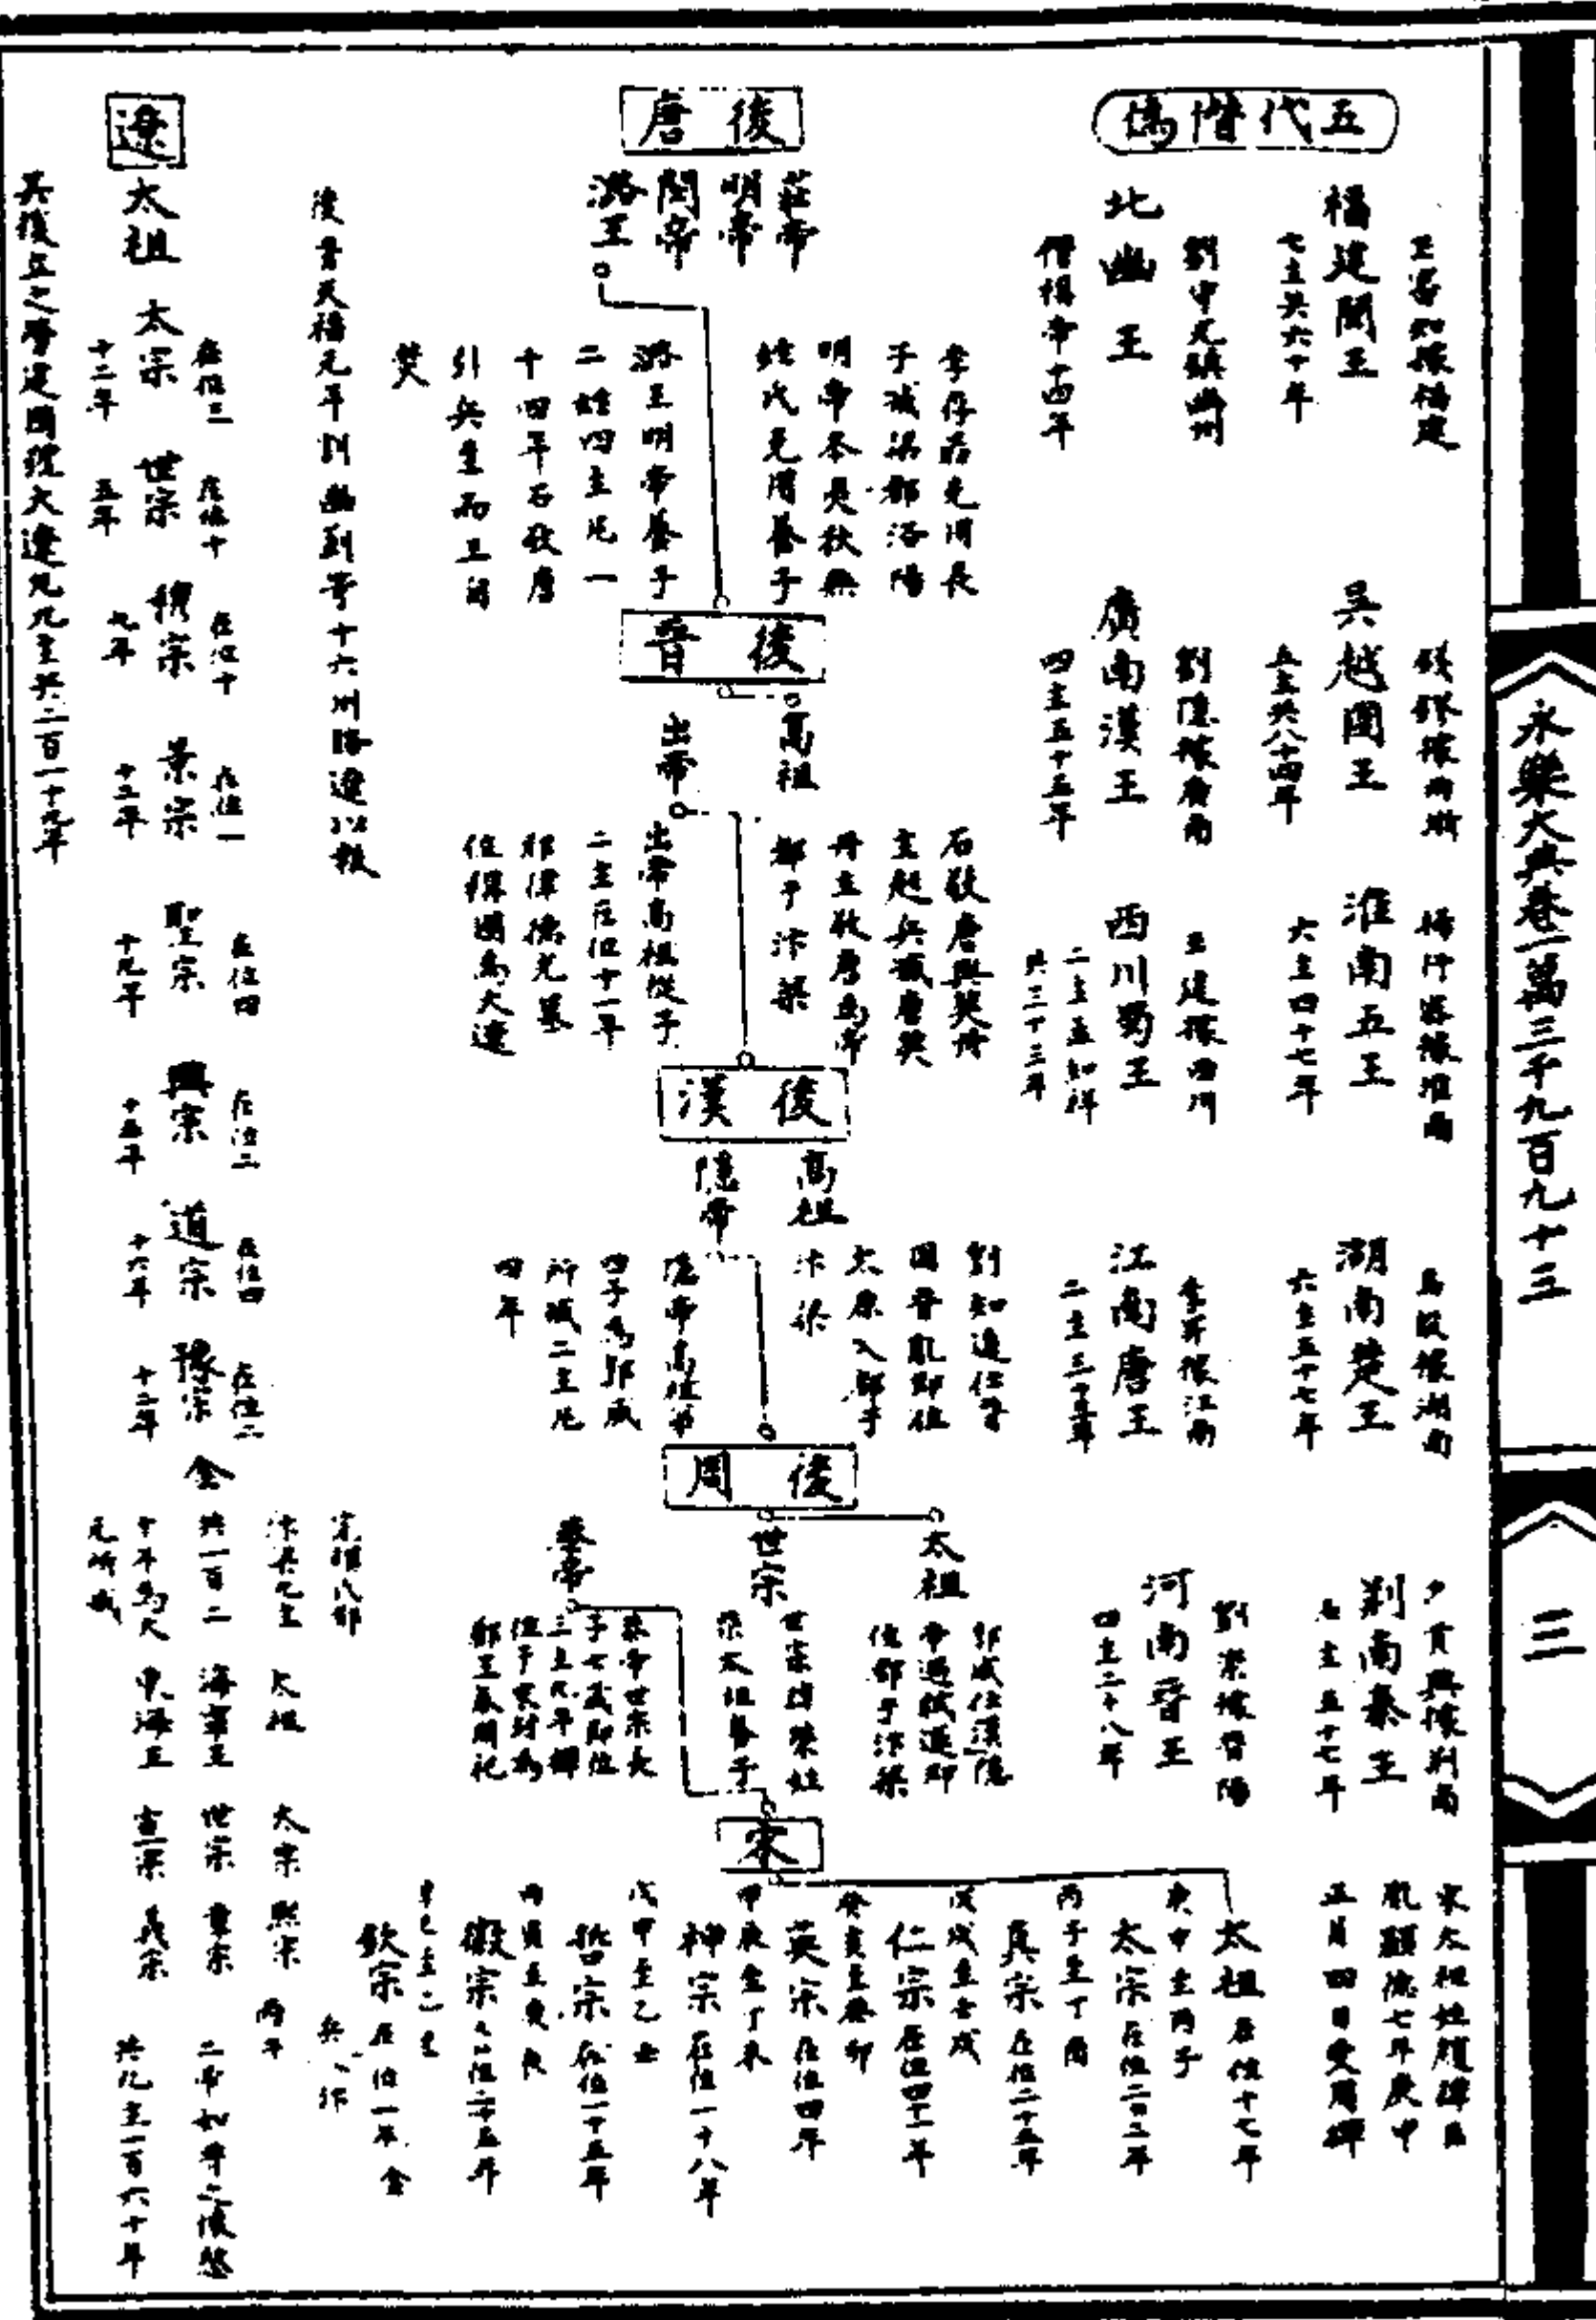 永樂大典卷一萬三千九百九十三
三
五代僭僞
王審知據福建
福建閩王
七主共六十年
錢鏐據兩浙
吳越國王
五主共八十四年
楊行密據淮南
淮南五王
六主四十七年
馬殷據湖南
湖南楚王
六主五十七年
荆南秦王
五主五十七年
劉守光鎮幽州
北幽王
僭稱帝十四年
劉隱據廣南
廣南漢王
四主五十五年
王建據四川
西川蜀王
二主孟知祥
共三十三年
李昇據江南
江南唐王
劉崇據晉陽
河南晉王
四主二十八年
後唐
莊帝
明帝
閔帝
潞王
李存勗克用長
子滅梁都洛陽
明帝本是狄無
姓氏克用養子
潞王明帝養子
二姓四主凡一
十四年石敬唐
引兵至而王自
焚
後晉
高祖
出帝
石敬唐與契丹
主起兵滅唐契
丹立敬唐爲帝
都于汴梁
出帝高祖從子
二主在位十一年
耶律德光墓
位稱國爲大遼
後晉天福元年割幽薊等十六州賂遼以報
後漢
高祖
隱帝
劉知遠仕晉
國晉亂卽位
太原入都于
汴梁
四子爲郭威
所滅二主凡
四年
後周
太祖
世宗
恭帝
郭威仕漢隱
帝遇弒遂卽
位都于汴梁
世宗諱榮姓
柴太祖養子
恭帝世宗長
子七歲卽位
三主九年禪
位于宋封爲
鄭王奉周祀
宋
宋太祖姓趙諱匡
胤顯德七年庚申
正月四日受周禪
太祖在位十七年
庚申至丙子
太宗在位二十二年
丙子至丁酉
真宗在位二十五年
戊戌至壬戌
仁宗在位四十一年
癸亥至癸卯
英宗在位四年
甲辰至丁未
神宗在位一十八年
戊申至乙丑
哲宗在位一十五年
丙寅至庚辰
徽宗在位二十五年
辛巳至乙巳
欽宗在位一年金
遼
太祖
太宗
在位二
十二年
世宗
在位十
五年
穆宗
在位十
九年
景宗
在位一
十二年
聖宗
在位四
十九年
興宗
在位二
十五年
道宗
在位四
十六年
豫宗
在位二
十二年
其後立之學建國號大遼凡九主共二百一十九年
金
共一百二
十年爲大
元所滅
太祖
太宗
熙宗
海寧王
世宗
章宗
東海王
宣宗
義宗
共九主一百六十年